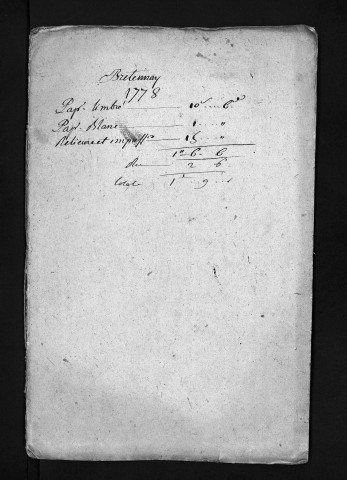 Bretennay
1778
Pap. timbré 10s 6d
Pap. Blanc 1 "
Relieure et impression 15 "
1# 6 6
2 6
total 1# 9